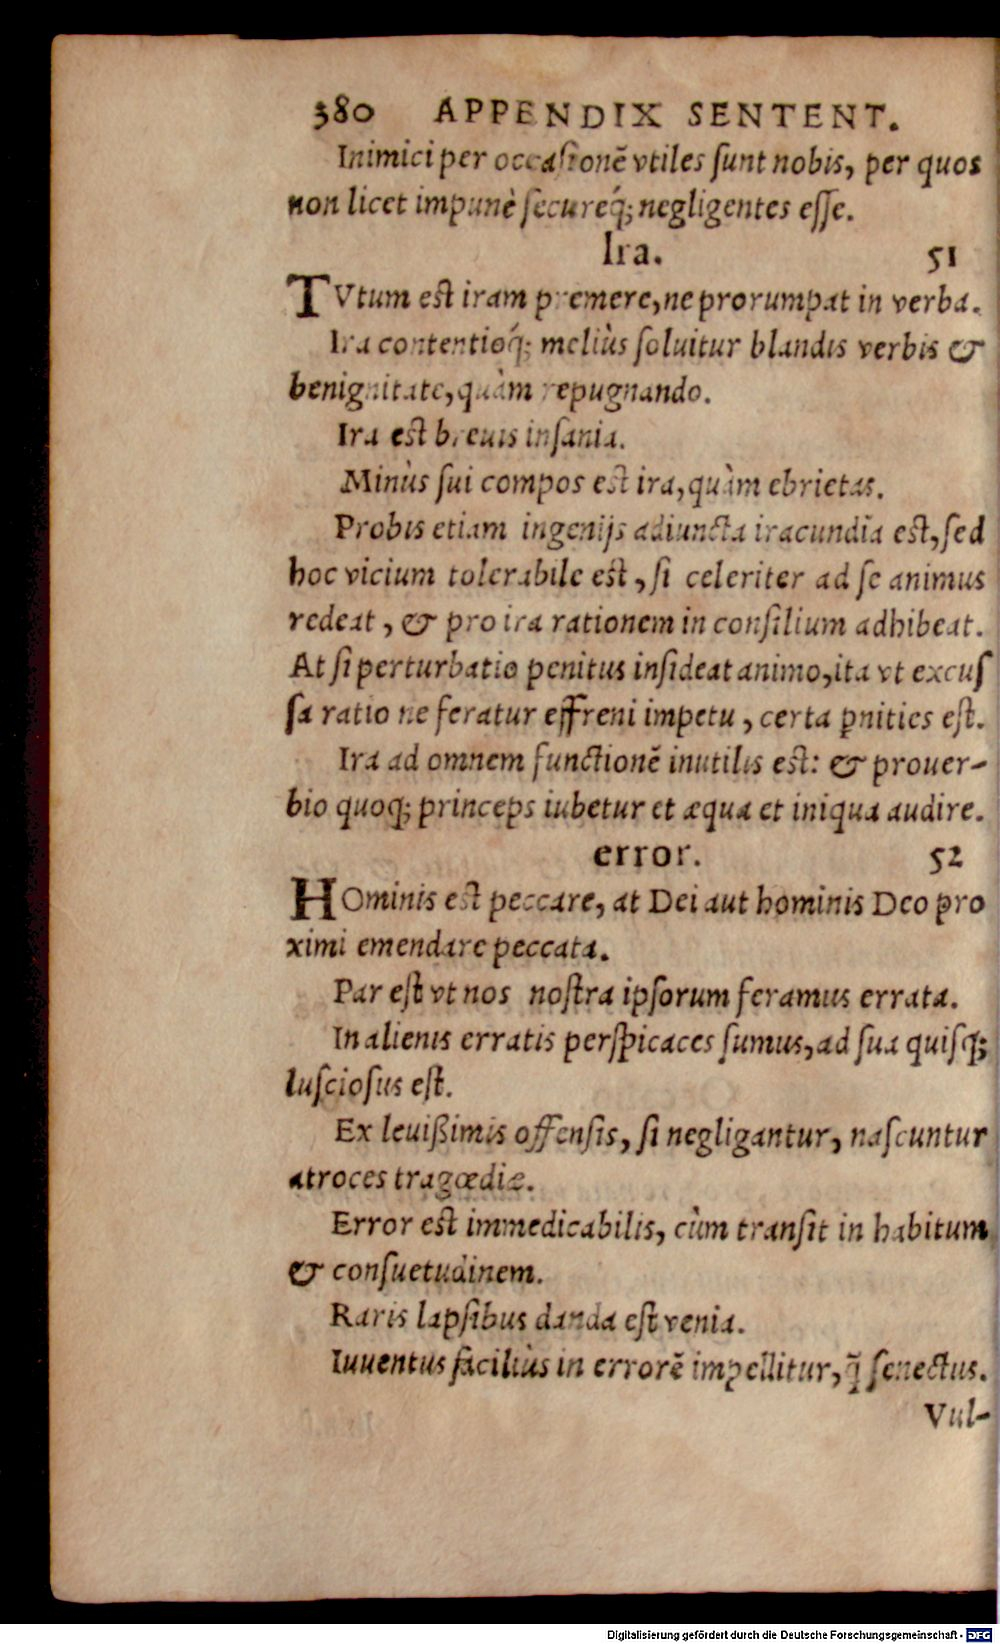 380 APPENDIX SENTENT.
Inimici per occasionē vtiles ſunt nobis, per quos
non licet impunè ſecureq́; negligentes eſſe.
Ira. 51
TVtum est iram premere, ne prorumpat in verba.
Ira contentioq́; meliùs ſoluitur blandis verbis &
benignitate, quàm repugnando.
Ira est breuis inſania.
Minùs ſui compos est ira, quàm ebrietas.
Probis etiam ingenijs adiuncta iracundia est, ſed
hoc vicium tolerabile est, ſi celeriter ad ſe animus
redeat, & pro ira rationem in conſilium adhibeat.
At ſi perturbatio penitus inſideat animo, ita vt excuſ
ſa ratio ne feratur effreni impetu, certa ꝑnities eſt.
Ira ad omnem functionē inutilis est: & prouer-
bio quoq; princeps iubetur et æqua et iniqua audire.
error. 52
HOminis est peccare, at Dei aut hominis Deo pro
ximi emendare peccata.
Par eſt vt nos noſtra ipſorum feramus errata.
In alienis erratis perſpicaces ſumus, ad ſua quiſq;
luſcioſus eſt.
Ex leuißimis offenſis, ſi negligantur, naſcuntur
atroces tragœdiæ.
Error est immedicabilis, cùm tranſit in habitum
& conſuetudinem.
Raris lapſibus danda eſt venia.
Iuuentus faciliùs in errorē impellitur, q̃ ſenectus.
Vul-
Digitalisierung gefördert durch die Deutsche Forschungsgemeinschaft - DFG